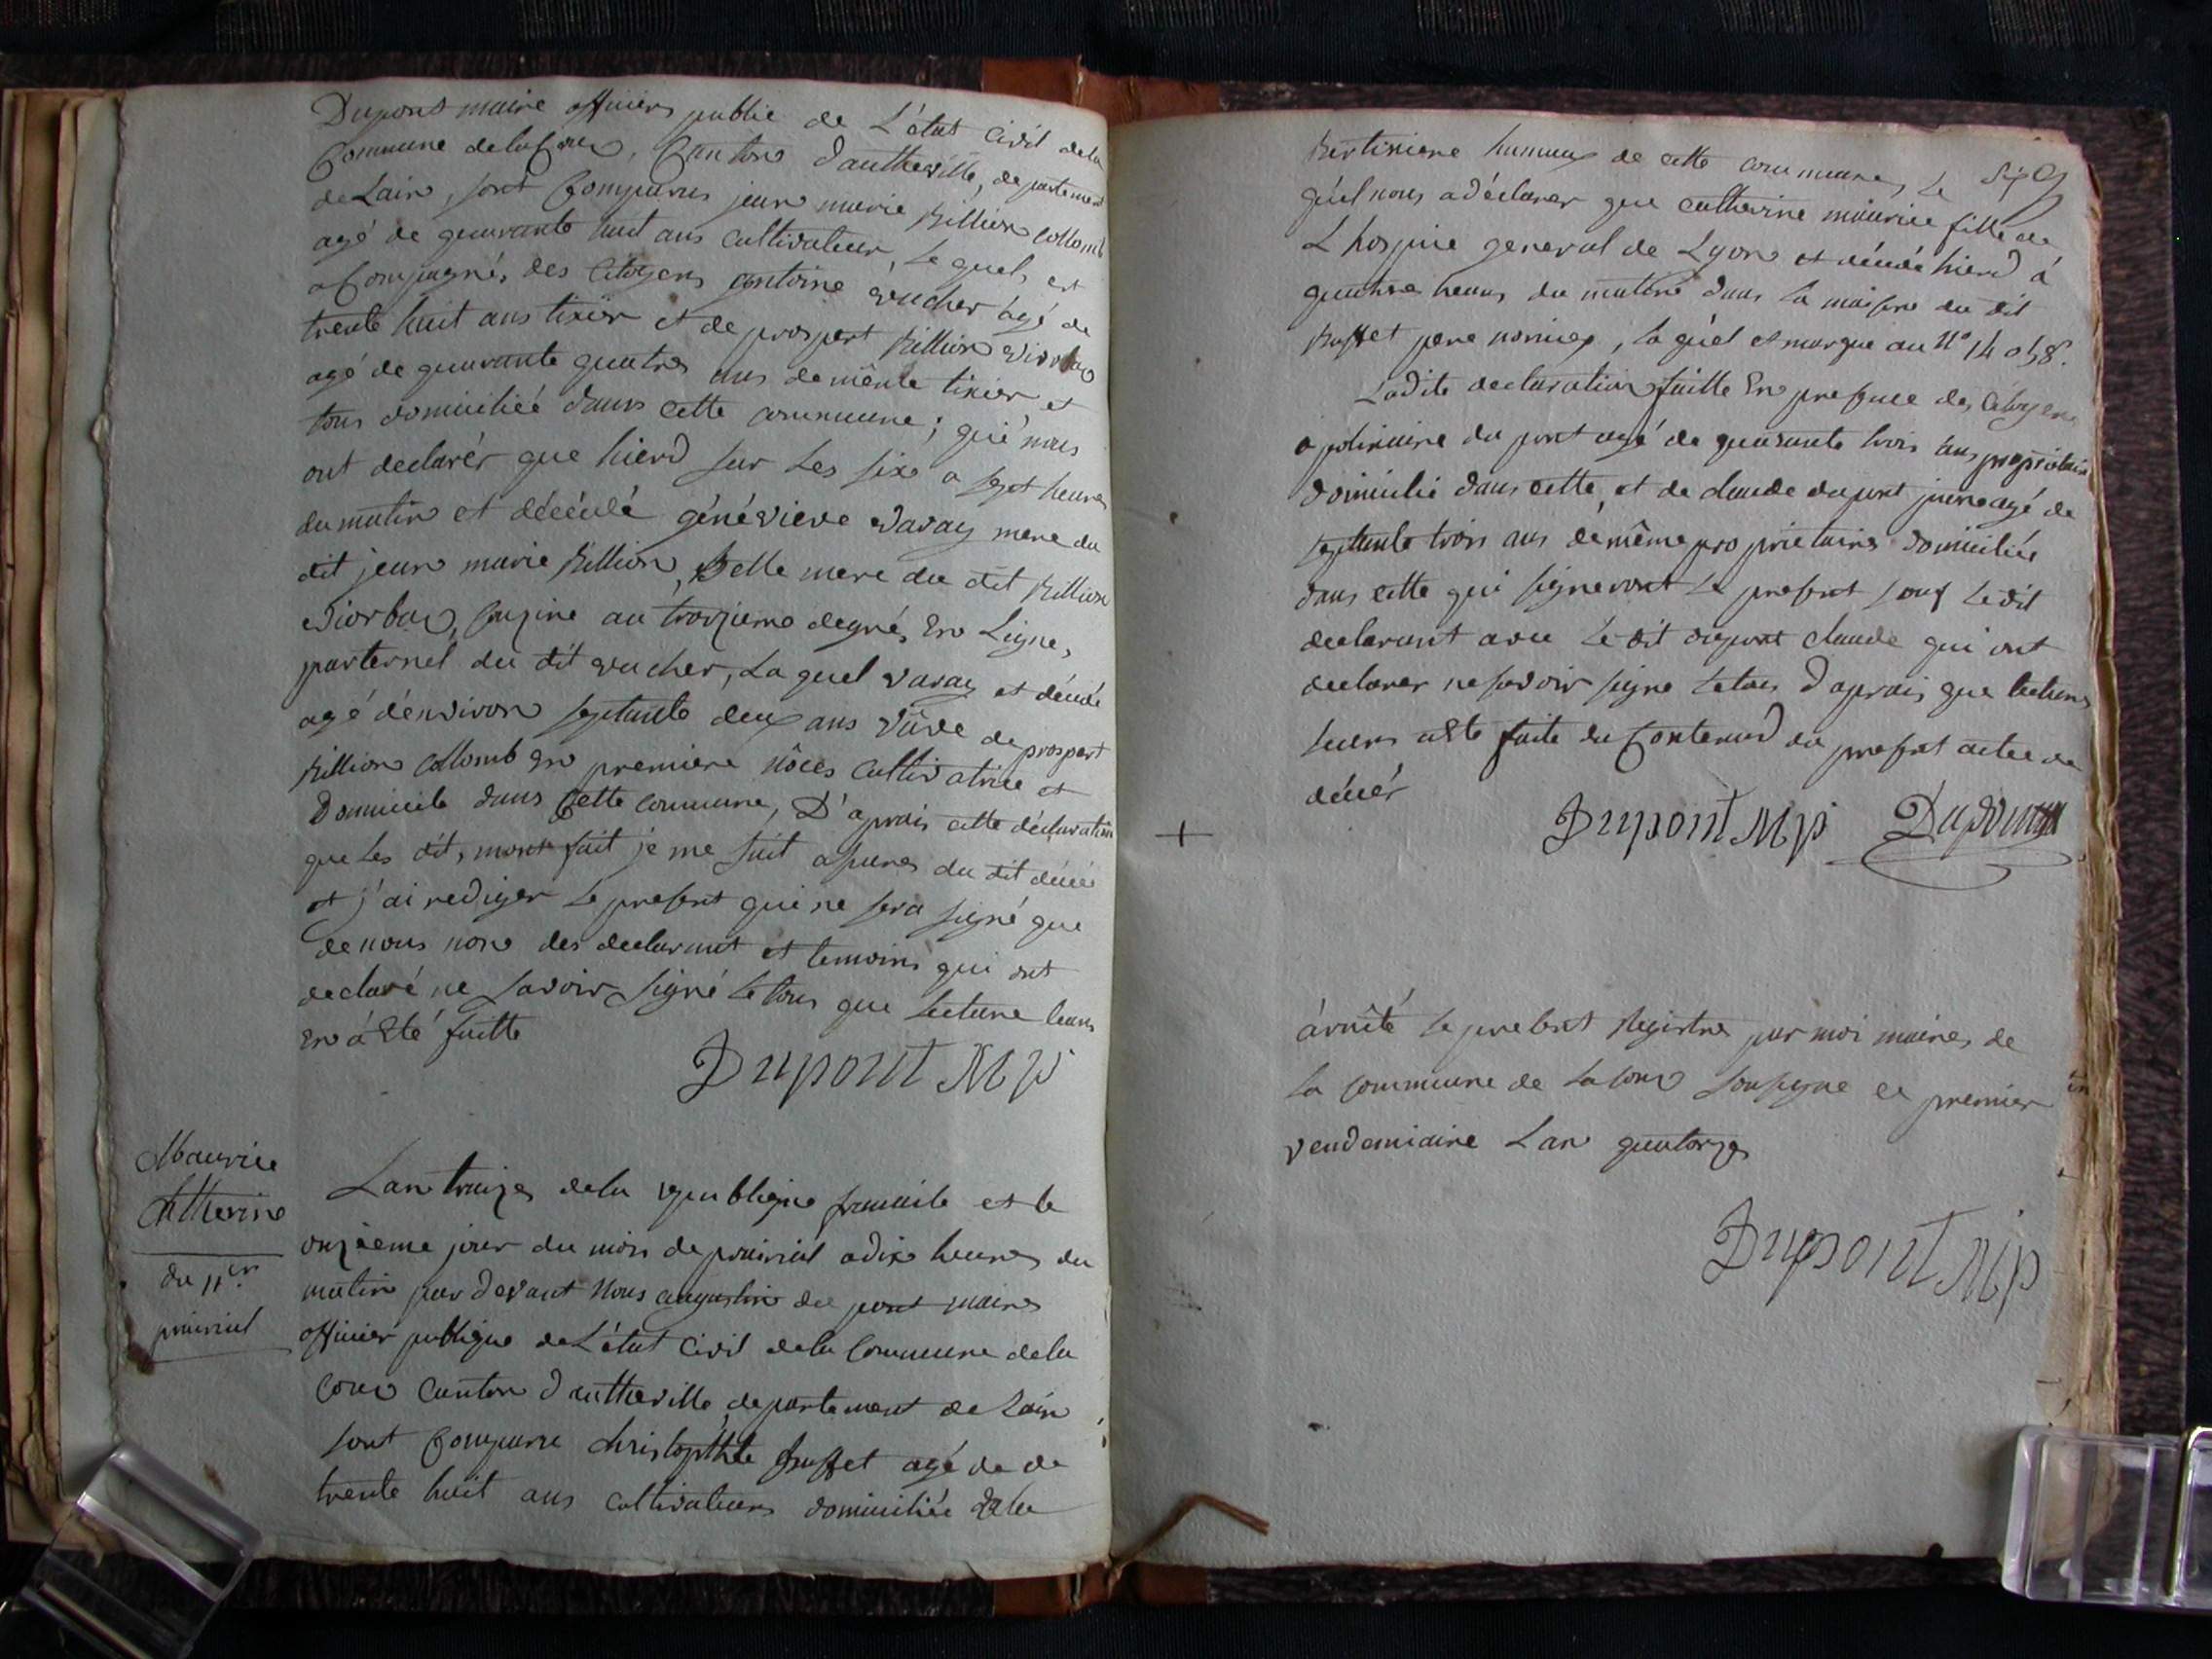 Dupont maire officier public de L'état Civil dela
Commune delaCoux, Canton dautheville, departement
deLain, sont Comparus jean marie Billion collomb
agé de quarante huit ans cultivateur, Le quel, est
aCompagné, des Citoyens antoine vucher agé de
trente huit ans tixier et de prospert Billion
agé de quarante quatres ans demême tixier, et
tous domiciliéé dans cette commune; qui nous
ont declarér que hierd sur Les six a sept heures
du matin et décédé génévieve varay mere du
dit jean marie Billion, Belle mere du dit Billion
Couzine au troizieme degré, En Ligne,
parternel du dit vucher, La quel varay et décédé
agé dénviron septante deux ans Vûve de prospert
Billion collomb En premiere nôces cultivatrice et
Domicile dans Cette commune, D'aprais cette déclaration
que Les dit, mont fait je me suit asures du dit décé
et j'ai rediger Le present qui ne sera signé que
de nous non des declarant et temoins qui ont
declaré ne savoir signé Le tous que Lecture leurs
En á Eté faitte
Dupont Mp
Maurice
Catherine
du 11er
prairial
Lan traize dela republique francaise et le
onzieme jour du mois de prairial a dix heures du
matin par devant Nous augustin du pont maires
officier publique de L'état Civil dela Commune dela
Coux Canton dautheville departement de Lain
sont Comparu christophle Buffet agé de de
trente huit ans cultivateurs domiciliée dela
hameux de cette commune, Le
quel nous a déclarer que catherine maurice fille de
L hospice general de Lyon et décédé hierd á
quatres heures du matin dans La maison du dit
Buffet pere nourice, La quél et marque au N° 14058.
Ladite declaration faitte En presence des Citoyens
apolinaire du pont agé de quarante trois ans propriétaire
domicilié dans cette, et de claude dupont agé de
septante trois ans démême proprietaires domiciliée
dans cette qui signeront Le present sauf Le dit
declarant avec Le dit dupont claude qui ont
declarer ne savoir signe Le tous daprais que lecture
leurs a Eté faite du Contenud du present acte de
décér
Dupont Mp Dupont
árrêté Le present Registres par moi maires de
La commune de La coux sousigne ce premier
vendemiaire Lan quatorze
Dupont Mp